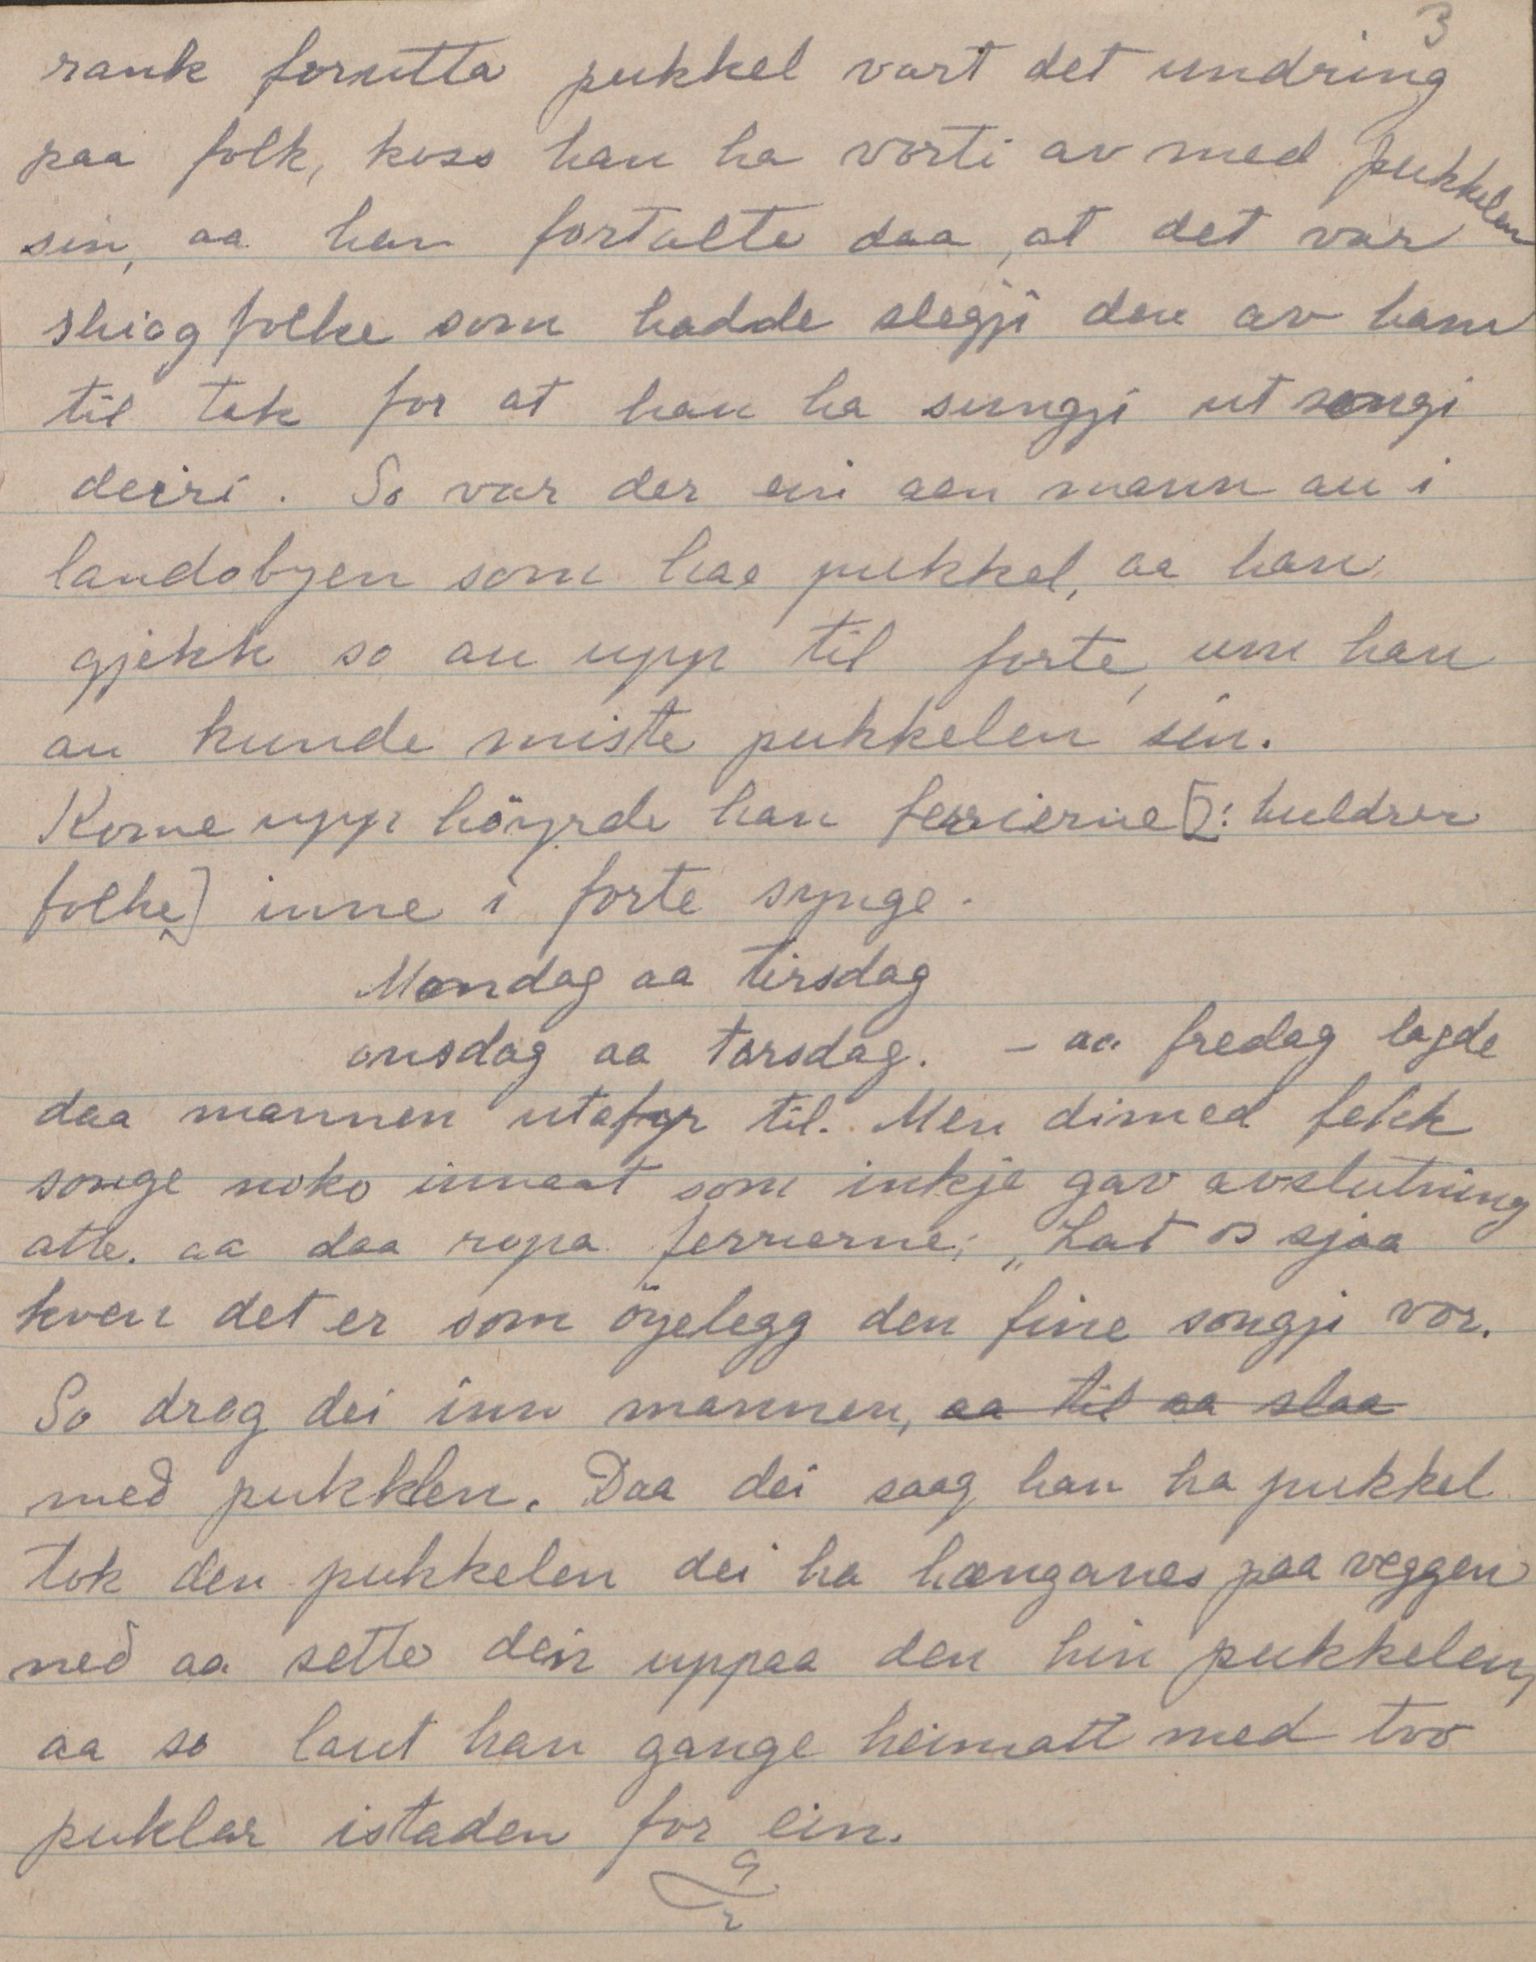 3
rank forutta pukkel vart det undring
paa folk, koss han ha vorti av med pukkelen
sin, aa han fortalte daa, at det var
skiogfolke som hadde slegji den av hann
til tak for at han ha sungji ut songi
deiri. So var der ein aen mann au i
landsbyen som hae pukkel, aa han
gjekk so au upp til forte, um han
au kunde miste pukkelen sin.
Kome upp höyrde han ferrierne [ɔ: huldrer
folke] inne i forte synge.
Mondag aa tirsdag
onsdag aa torsdag. – aa fredag lagde
daa mannen utafyr til. Men dimed fekk
songe noko innaat som inkje gav avslutning
atte. aa daa ropa ferrierne; „Lat os sjaa
kven det er som öyelegg den fine songji vor.
So drog dei inn mannen, aa til aa slaa
med pukklen. Daa dei saag han ha pukkel
tok den pukkelen dei ha hænganes paa veggen
ned aa sette dein uppaa den hin pukkelen,
aa so laut han gange heimatt med tvo
puklar istaden for ein.